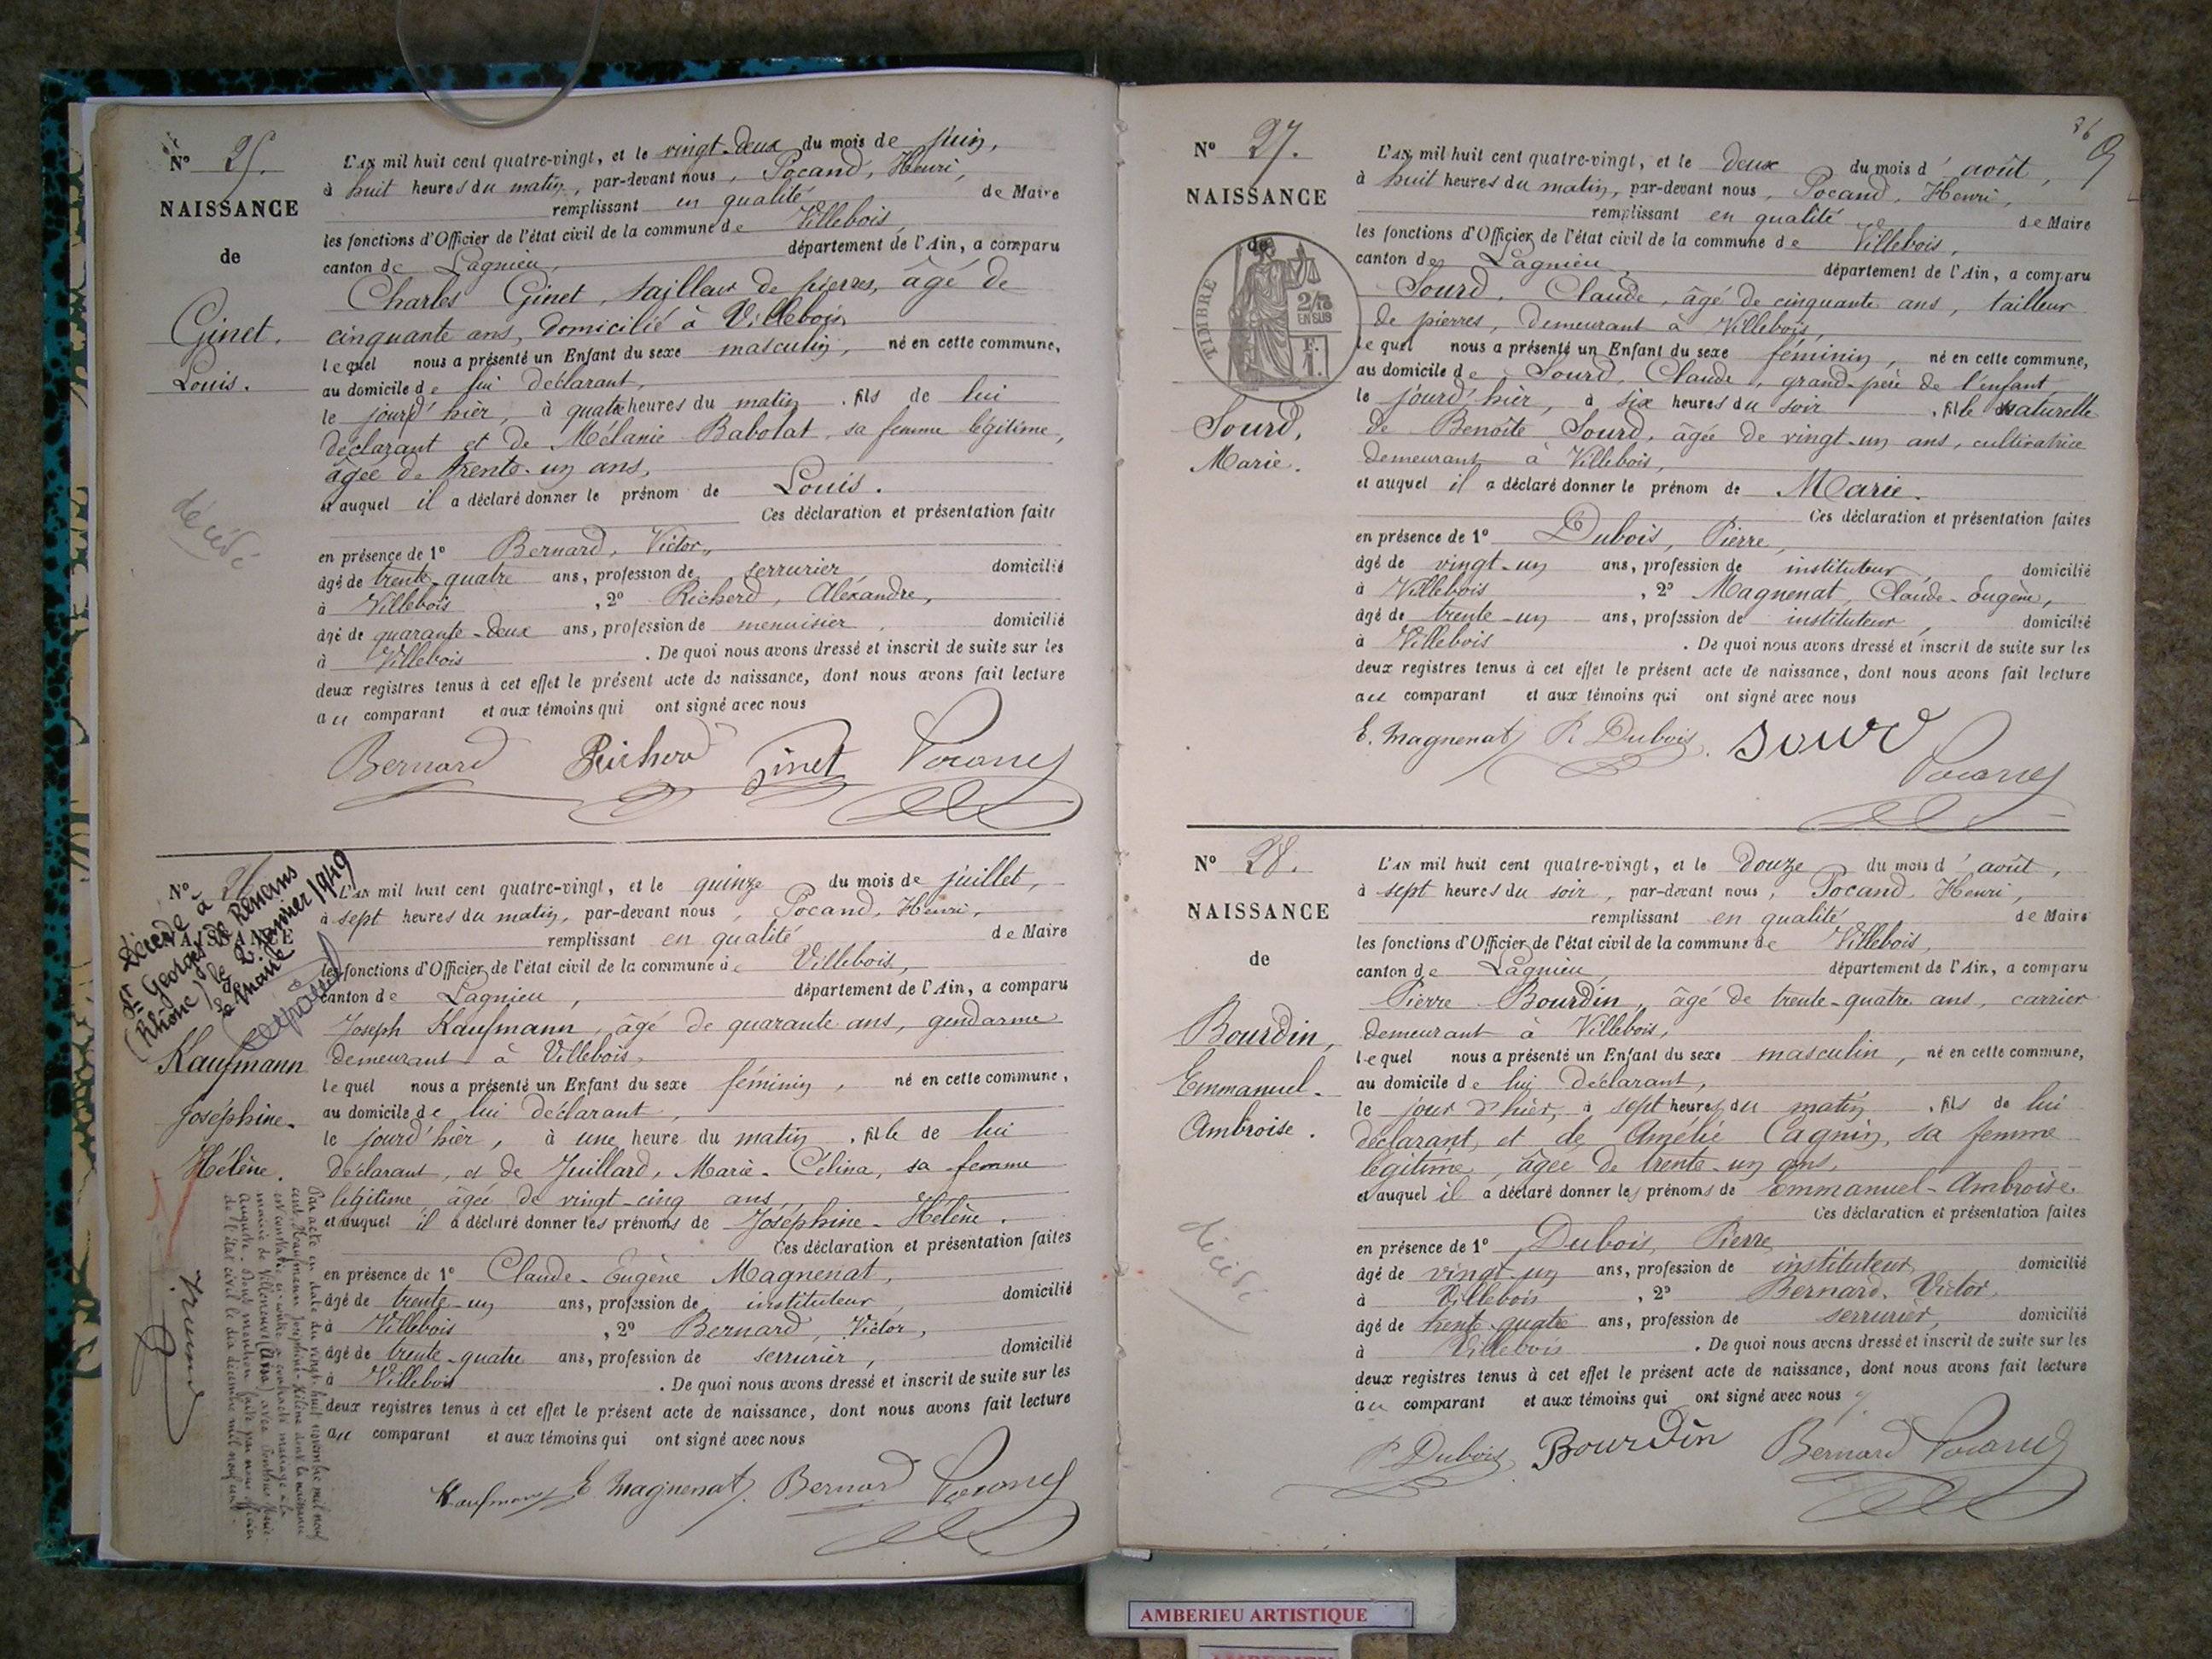 N° 25.
NAISSANCE
de
Ginet,
Louis.
décédé
L'AN mil huit cent quatre-vingt, et le vingt-deux du mois de juin,
à huit heures du matin, par-devant nous, Pocand, Henri,
remplissant en qualité de Maire
les fonctions d'Officier de l'état civil de la commune de Villebois,
canton de Lagnieu, département de l'Ain, a comparu
Charles Ginet, tailleur de pierres, âgé de
cinquante ans, domicilié à Villebois,
lequel nous a présenté un Enfant du sexe masculin, né en cette commune,
au domicile de lui déclarant,
le jourd'hier, à quatre heures du matin, fils de lui
déclarant et de Mélanie Babolat, sa femme légitime,
âgée de trente-un ans,
et auquel il a déclaré donner le prénom de Louis.
Ces déclaration et présentation faite
en présence de 1° Bernard, Victor,
âgé de trente-quatre ans, profession de serrurier domicilié
à Villebois, 2° Richerd, Aléxandre,
âgé de quarante-deux ans, profession de menuisier, domicilié
à Villebois. De quoi nous avons dressé et inscrit de suite sur les
deux registres tenus à cet effet le présent acte de naissance, dont nous avons fait lecture
au comparant et aux témoins qui ont signé avec nous
Bernard Richerd Ginet Pocand
N° 26
NAISSANCE
Décédé à
St Georges de Reneins
(Rhône) le 2 janvier 1949
Le Maire
Kaufmann
Joséphine-
Hélène.
Par acte en date du vingt-huit novembre mil neuf
cent, Kaufmann Joséphine-Hélène dont la naissance
est constatée ci-contre a contracté mariage à la
mairie de Villeneuve (Ain) avec
Auguste. Dont mention faite par nous officier
de l'état civil le dix décembre mil neuf cent.
L'AN mil huit cent quatre-vingt, et le quinze du mois de juillet,
à sept heures du matin, par-devant nous, Pocand, Henri,
remplissant en qualité de Maire
les fonctions d'Officier de l'état civil de la commune de Villebois,
canton de Lagnieu, département de l'Ain, a comparu
Joseph Kaufmann, âgé de quarante ans, gendarme
demeurant à Villebois,
lequel nous a présenté un Enfant du sexe féminin, né en cette commune,
au domicile de lui déclarant,
le jourd'hier, à une heure du matin, fille de lui
déclarant, et de Juillard, Marie-Célina, sa femme
légitime âgée de vingt-cinq ans,
et auquel il a déclaré donner les prénoms de Joséphine-Hélène.
Ces déclaration et présentation faites
en présence de 1° Claude-Eugène Magnenat,
âgé de trente-un ans, profession de instituteur, domicilié
à Villebois, 2° Bernard, Victor,
âgé de trente-quatre ans, profession de serrurier, domicilié
à Villebois. De quoi nous avons dressé et inscrit de suite sur les
deux registres tenus à cet effet le présent acte de naissance, dont nous avons fait lecture
au comparant et aux témoins qui ont signé avec nous
Kaufmann E. Magnenat Bernard Pocand
36
9
N° 27.
NAISSANCE
de
TIMBRE
2/10
EN SUS
F.
1.
Sourd,
Marie.
L'AN mil huit cent quatre-vingt, et le deux du mois d'août,
à huit heures du matin, par-devant nous, Pocand, Henri,
remplissant en qualité de Maire
les fonctions d'Officier de l'état civil de la commune de Villebois,
canton de Lagnieu, département de l'Ain, a comparu
Sourd, Claude, âgé de cinquante ans, tailleur
de pierres, demeurant à Villebois,
lequel nous a présenté un Enfant du sexe féminin, né en cette commune,
au domicile de Sourd, Claude, grand-père de l'enfant
le jourd'hier, à six heures du soir, fille naturelle
de Benoîte Sourd, âgée de vingt-un ans, cultivatrice
demeurant à Villebois,
et auquel il a déclaré donner le prénom de Marie.
Ces déclaration et présentation faites
en présence de 1° Dubois, Pierre,
âgé de vingt-un ans, profession de instituteur, domicilié
à Villebois, 2° Magnenat, Claude-Eugène,
âgé de trente-un ans, profession de instituteur, domicilié
à Villebois. De quoi nous avons dressé et inscrit de suite sur les
deux registres tenus à cet effet le présent acte de naissance, dont nous avons fait lecture
au comparant et aux témoins qui ont signé avec nous
E. Magnenat P. Dubois. Sourd
Pocand
N° 28.
NAISSANCE
de
Bourdin,
Emmanuel-
Ambroise.
décédé
L'AN mil huit cent quatre-vingt, et le douze du mois d'août,
à sept heures du soir, par-devant nous, Pocand, Henri,
remplissant en qualité de Maire
les fonctions d'Officier de l'état civil de la commune de Villebois,
canton de Lagnieu, département de l'Ain, a comparu
Pierre Bourdin, âgé de trente-quatre ans, carrier
demeurant à Villebois,
lequel nous a présenté un Enfant du sexe masculin, né en cette commune,
au domicile de lui déclarant,
le jour d'hier, à sept heures du matin, fils de lui
déclarant, et de Amélie Cagnin, sa femme
légitime, âgée de trente-un ans,
et auquel il a déclaré donner les prénoms de Emmanuel-Ambroise.
Ces déclaration et présentation faites
en présence de 1° Dubois, Pierre
âgé de vingt-un ans, profession de instituteur, domicilié
à Villebois, 2° Bernard, Victor,
âgé de trente-quatre ans, profession de serrurier, domicilié
à Villebois. De quoi nous avons dressé et inscrit de suite sur les
deux registres tenus à cet effet le présent acte de naissance, dont nous avons fait lecture
au comparant et aux témoins qui ont signé avec nous
P. Dubois Bourdin Bernard Pocand
AMBERIEU ARTISTIQUE